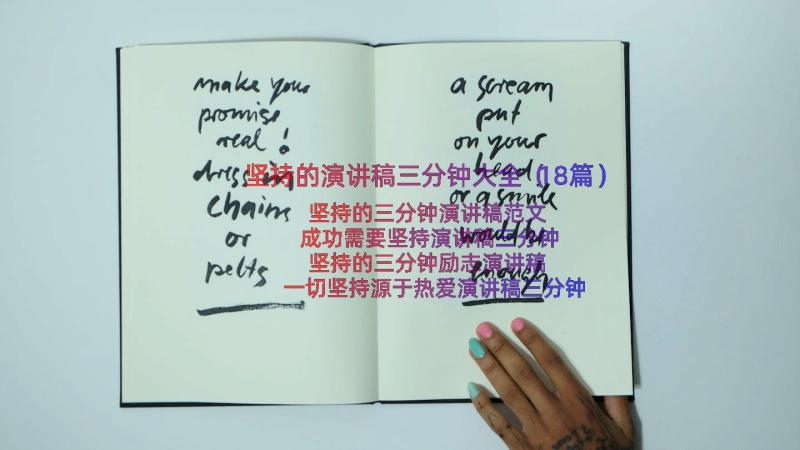 make your
promise
real!
dress in
chains
or
pelts
a scream
put
on your
head
or a smile
would be
enough
坚持的演讲稿三分钟大全(18篇)
坚持的三分钟演讲稿范文
成功需要坚持演讲稿三分钟
坚持的三分钟励志演讲稿
一切坚持源于热爱演讲稿三分钟